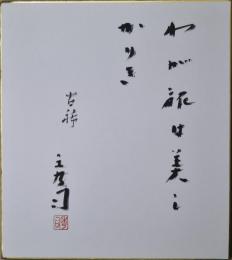 わが旅は美し
かりき
古稀